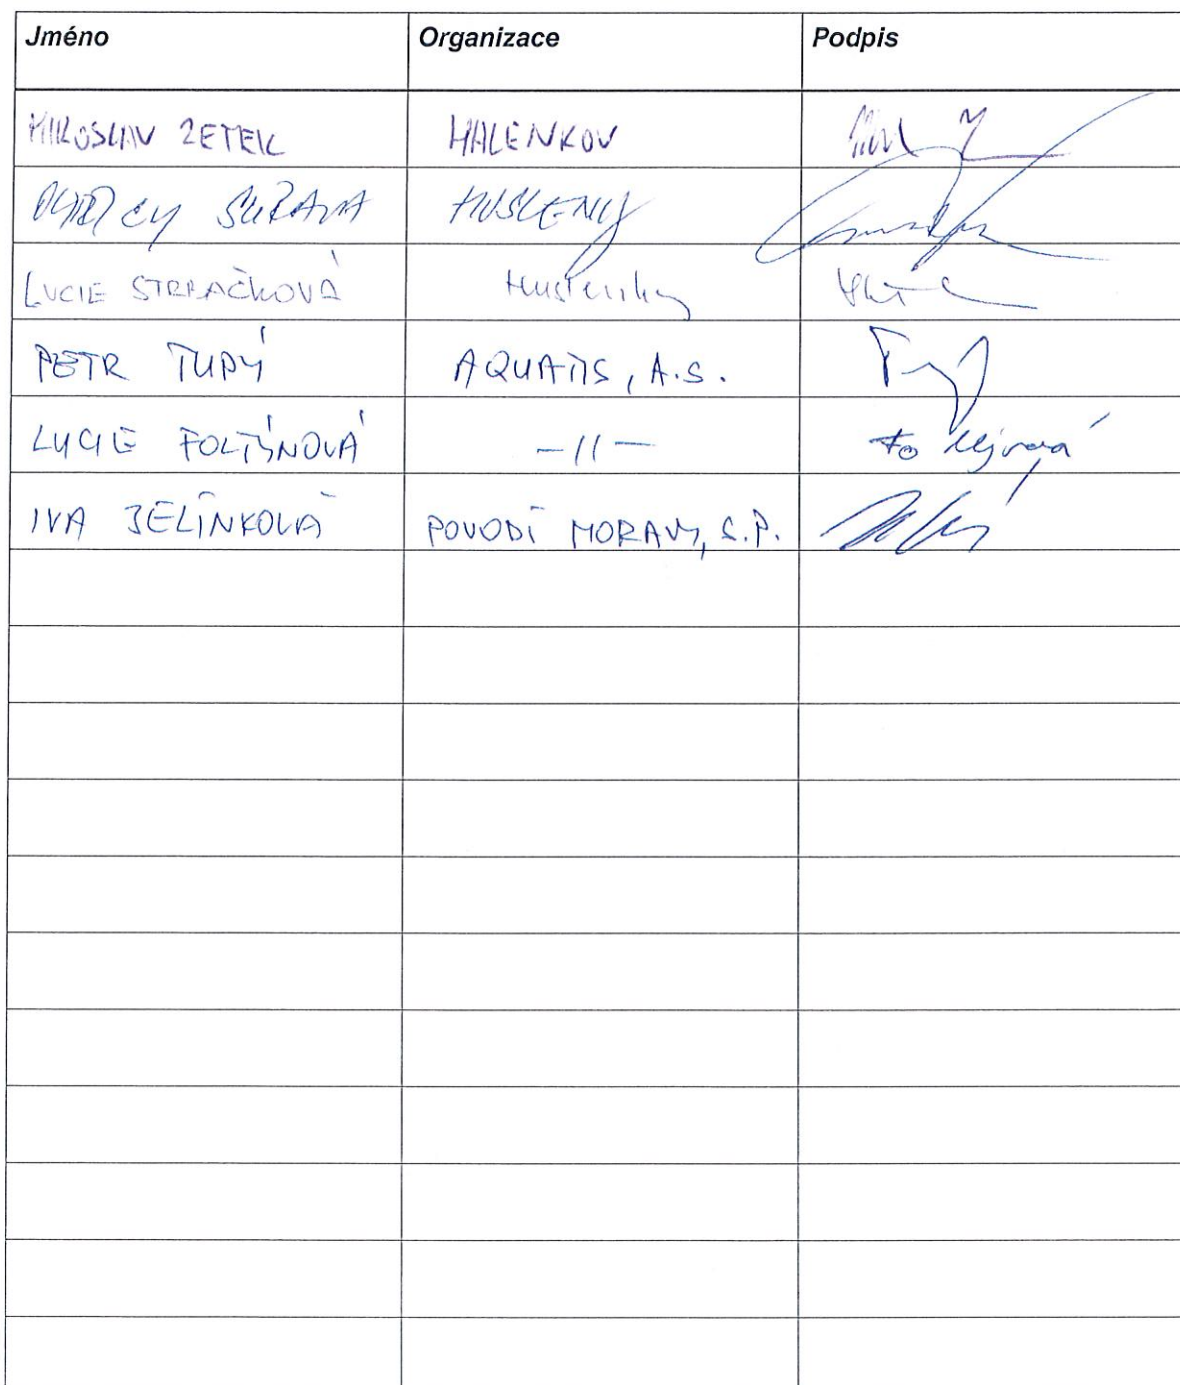 Jméno Organizace Podpis
MIROSLAV ZETEK HALENKOV
HUSLENKY
LUCIE STRBAČKOVÁ Huslenky
PETR TUPÝ AQUATIS, A.S.
LUCIE FOLTÝNOVÁ -||-
IVA JELÍNKOVÁ POVODÍ MORAVY, S.P.